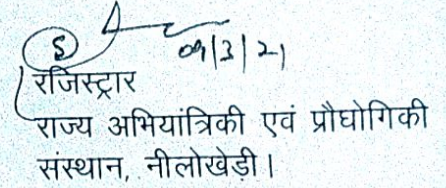 S
09/3/21
रजिस्ट्रार
राज्य अभियांत्रिकी एवं प्रौघोगिकी
संस्थान, नीलोखेड़ी।